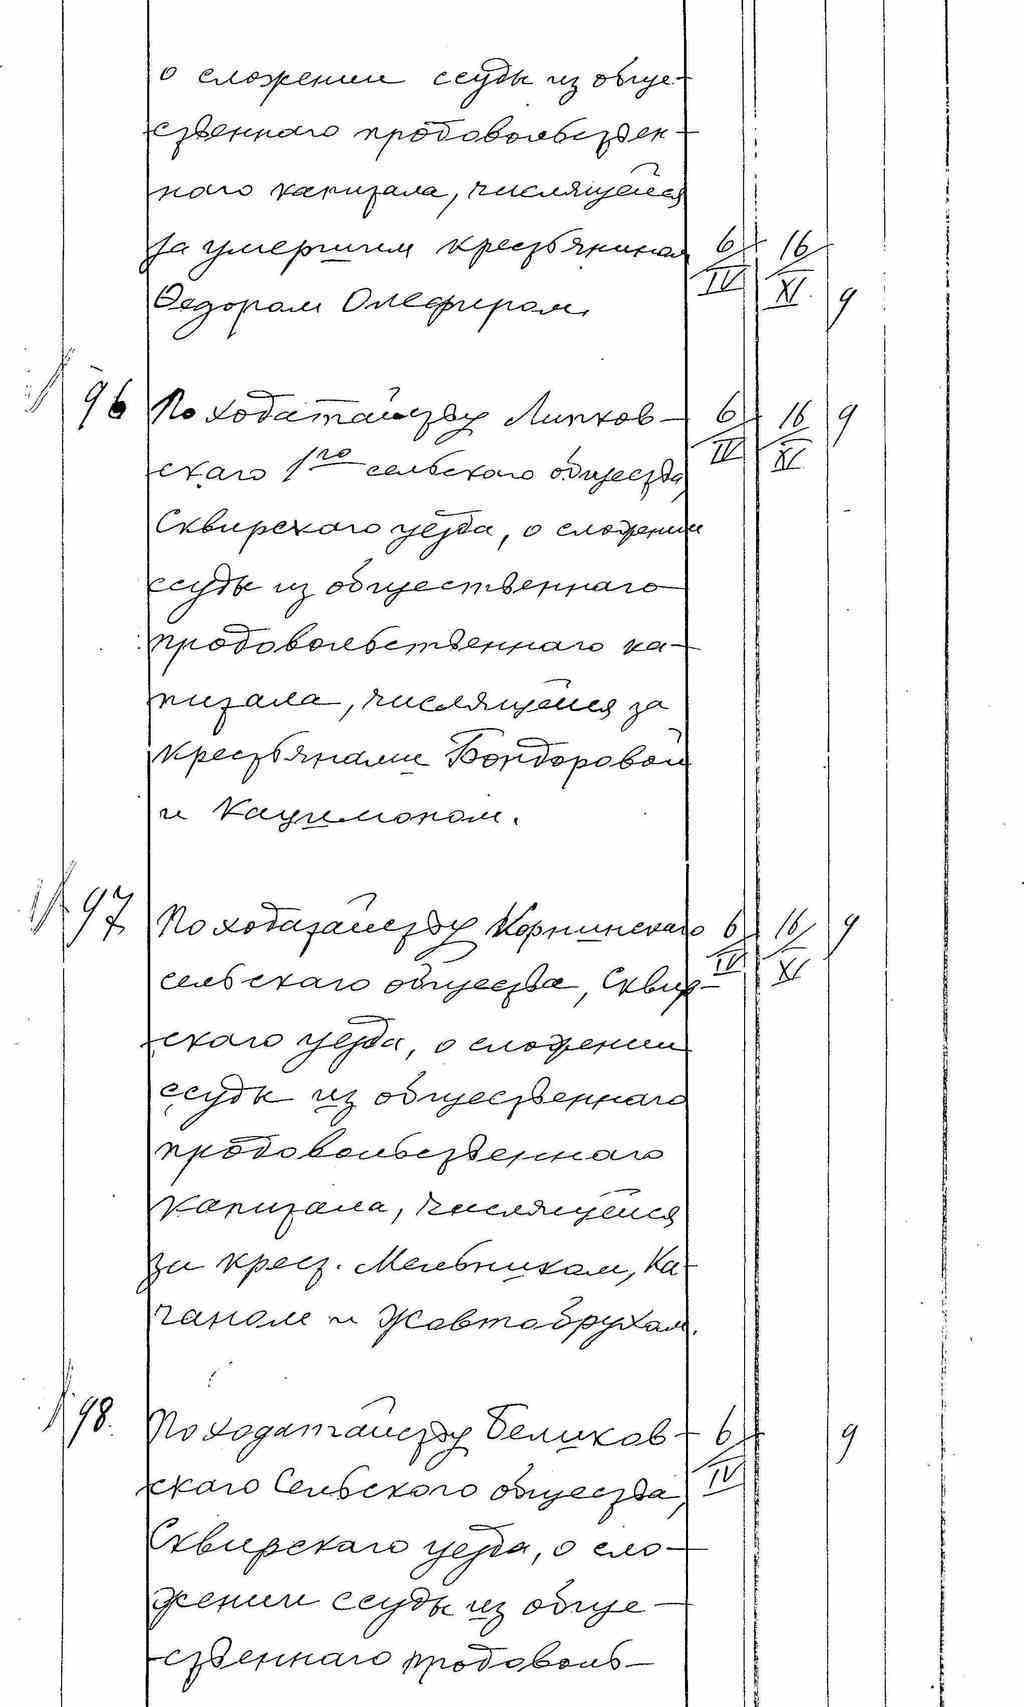 о сложении ссуды из обще-
ственнаго продовольствен-
наго капитала, числящейся
за умершим крестьянином 6/IV 16/XI
Федором Олефиром. 9
96 По ходатайству Липков- 6/IV 16/XI 9
скаго 1го сельскаго общества,
Сквирскаго уезда, о сложении
ссуды из общественнаго
продовольственнаго ка-
питала, числящейся за
крестьянами Бондоровой
и Кацимоном.
97 По ходатайству Корнинскаго 6/IV 16/XI 9
сельскаго общества, Сквир-
скаго уезда, о сложении
ссуды из общественнаго
продовольственнаго
капитала, числящейся
за крест. Мельником, Ка-
чаном и Жовтобрухом.
98. По ходатайству Беликов- 6/IV 9
скаго Сельского общества,
Сквирскаго уезда, о сло-
жении ссуды из обще-
ственнаго продоволь-